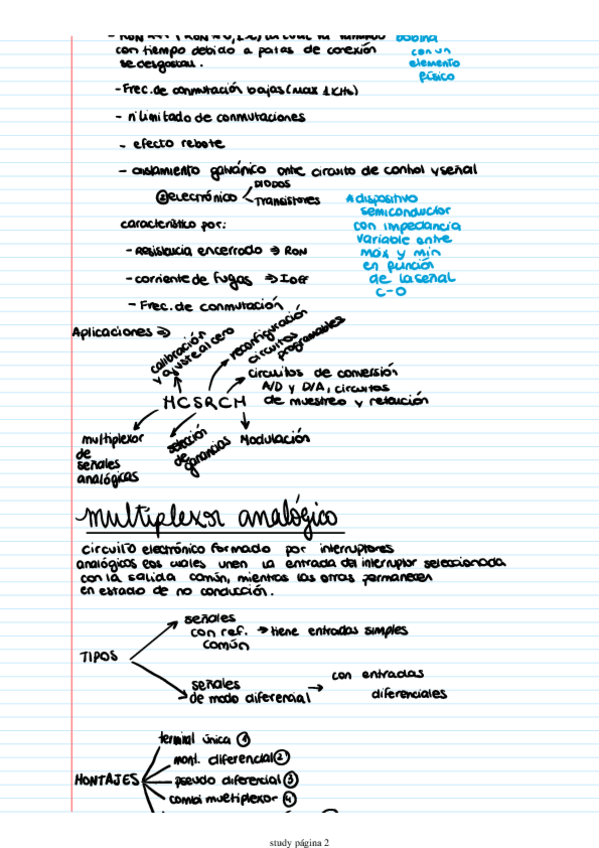 con tiempo debido a patas de conexión
se desgastan.
bobina
con un
elemento
físico
- Frec. de conmutación bajas (Max 1KHz)
- nº limitado de conmutaciones
- efecto rebote
- aislamiento galvánico entre circuito de control y señal
② electrónico
DIODOS
Transistores
A dispositivo
semiconductor
con impedancia
variable entre
máx y min
en función
de la señal
C-O
característico por:
- Resistencia encerrado ⇒ RON
- corriente de fugas ⇒ IOFF
- Frec. de conmutación
Aplicaciones ⇒
calibración
y ajuste al cero
reconfiguración
circuitos
programables
circuitos de conversión
A/D y D/A, circuitos
de muestreo y retención
MCSRCM
multiplexor
de
señales
analógicas
selección
de ganancias
Modulación
multiplexor analógico
circuito electrónico formado por interruptores
analógicos los cuales unen la entrada del interruptor seleccionada
con la salida común, mientras las otras permanecen
en estado de no conducción.
TIPOS
señales
con ref. → tiene entradas simples
común
señales
de modo diferencial → con entradas
diferenciales
MONTAJES
terminal única ①
mont. diferencial ②
pseudo diferencial ③
combi multiplexor ④
study página 2